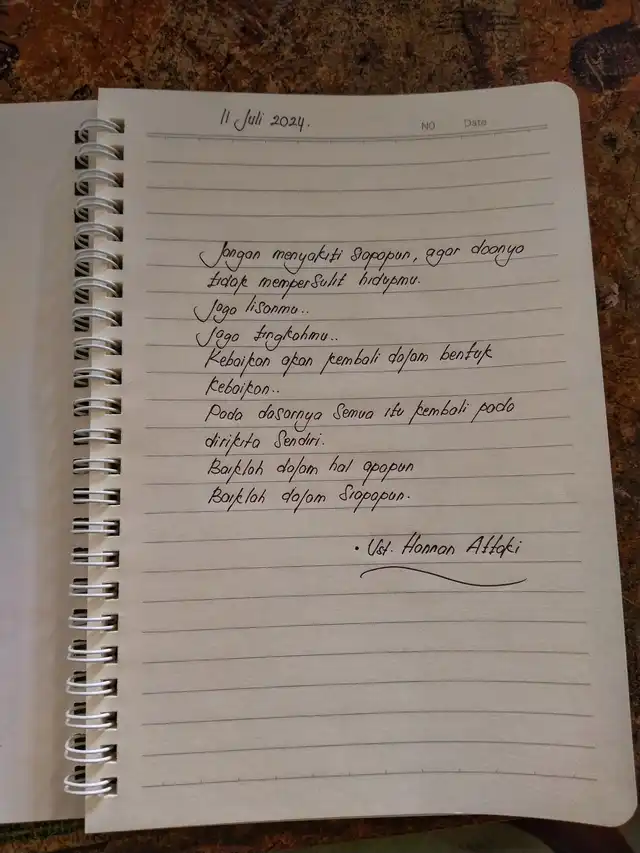 11 Juli 2024.
NO Date
Jangan menyakiti siapapun, agar doanya
tidak mempersulit hidupmu.
Jaga lisanmu..
Jaga tingkahmu..
Kebaikan akan kembali dalam bentuk
kebaikan..
Pada dasarnya semua itu kembali pada
dirikita sendiri.
Baiklah dalam hal apapun
Baiklah dalam siapapun.
• Ust. Hannan Attaki